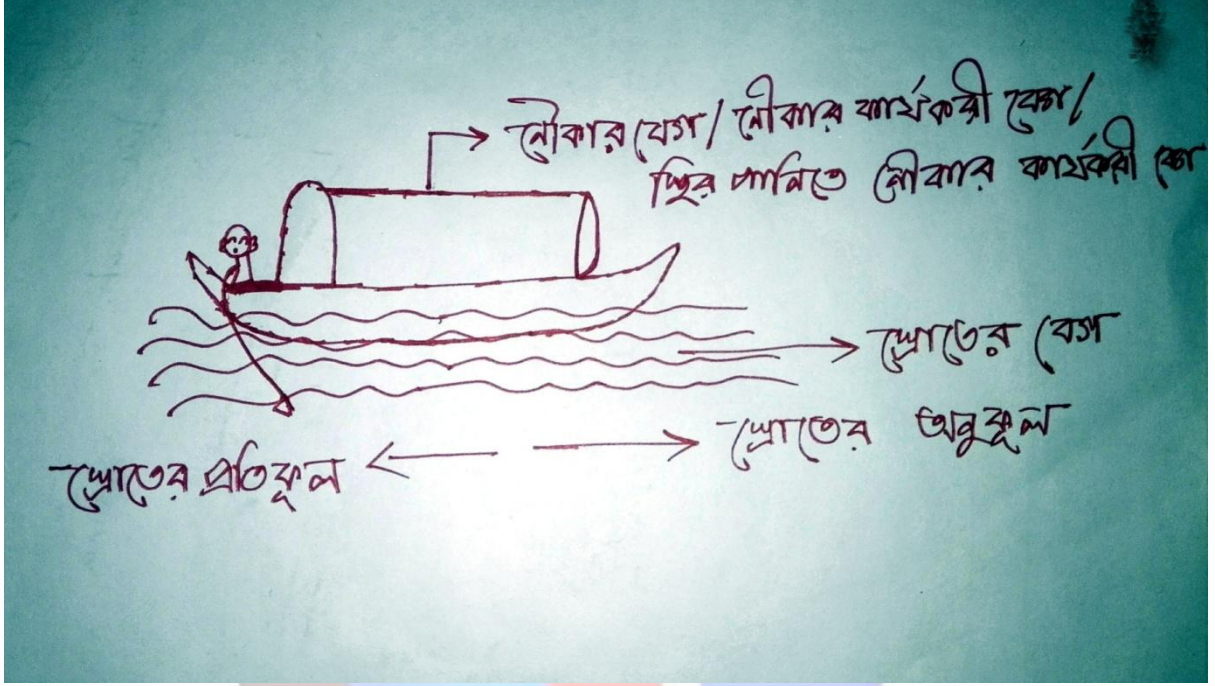 নৌকার বেগ/ নৌকার কার্যকরী বেগ/
স্থির পানিতে নৌকার কার্যকরী বেগ
স্রোতের বেগ
স্রোতের অনুকূল
স্রোতের প্রতিকূল